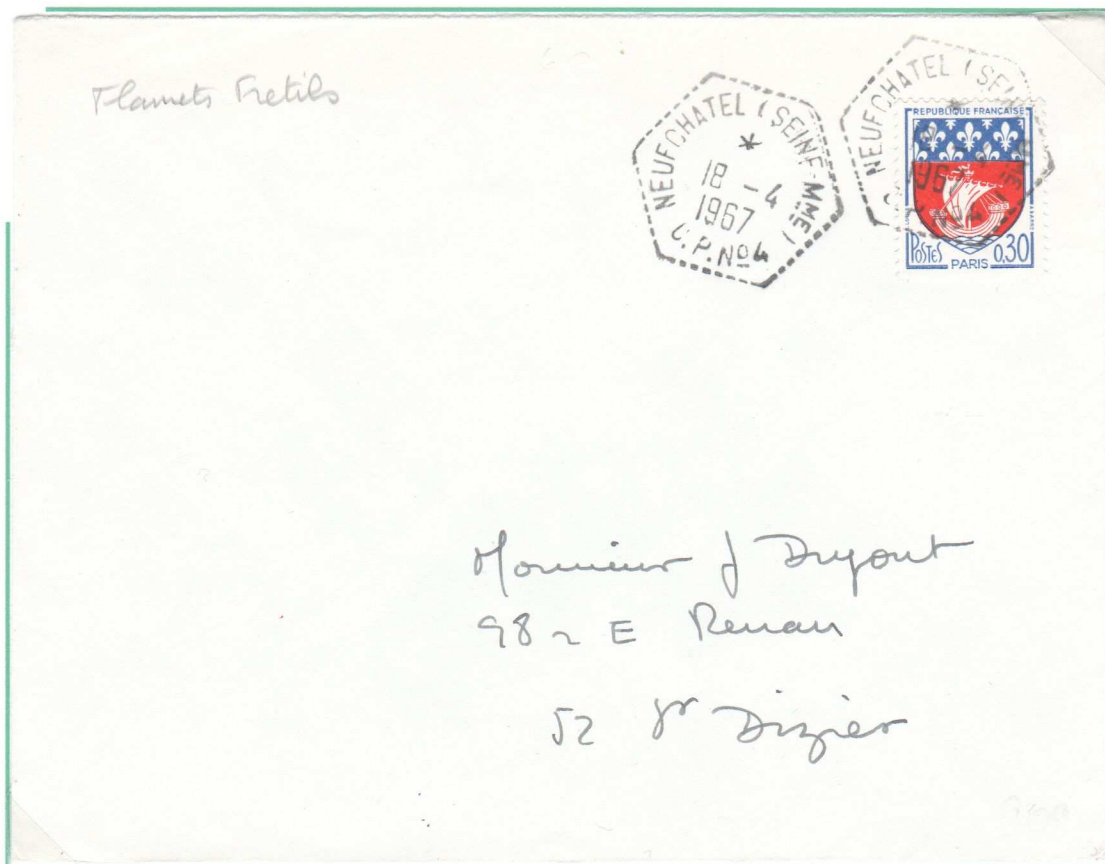 Flamets Fretils
NEUFCHATEL (SEINE-MME)
*
18 -4
1967
C.P. Nº4
NEUFCHATEL (SEINE
1967
Nº4
REPUBLIQUE FRANÇAISE
POSTES PARIS 0,30
Monsieur J Dupont
98 r E Renan
52 St Dizier